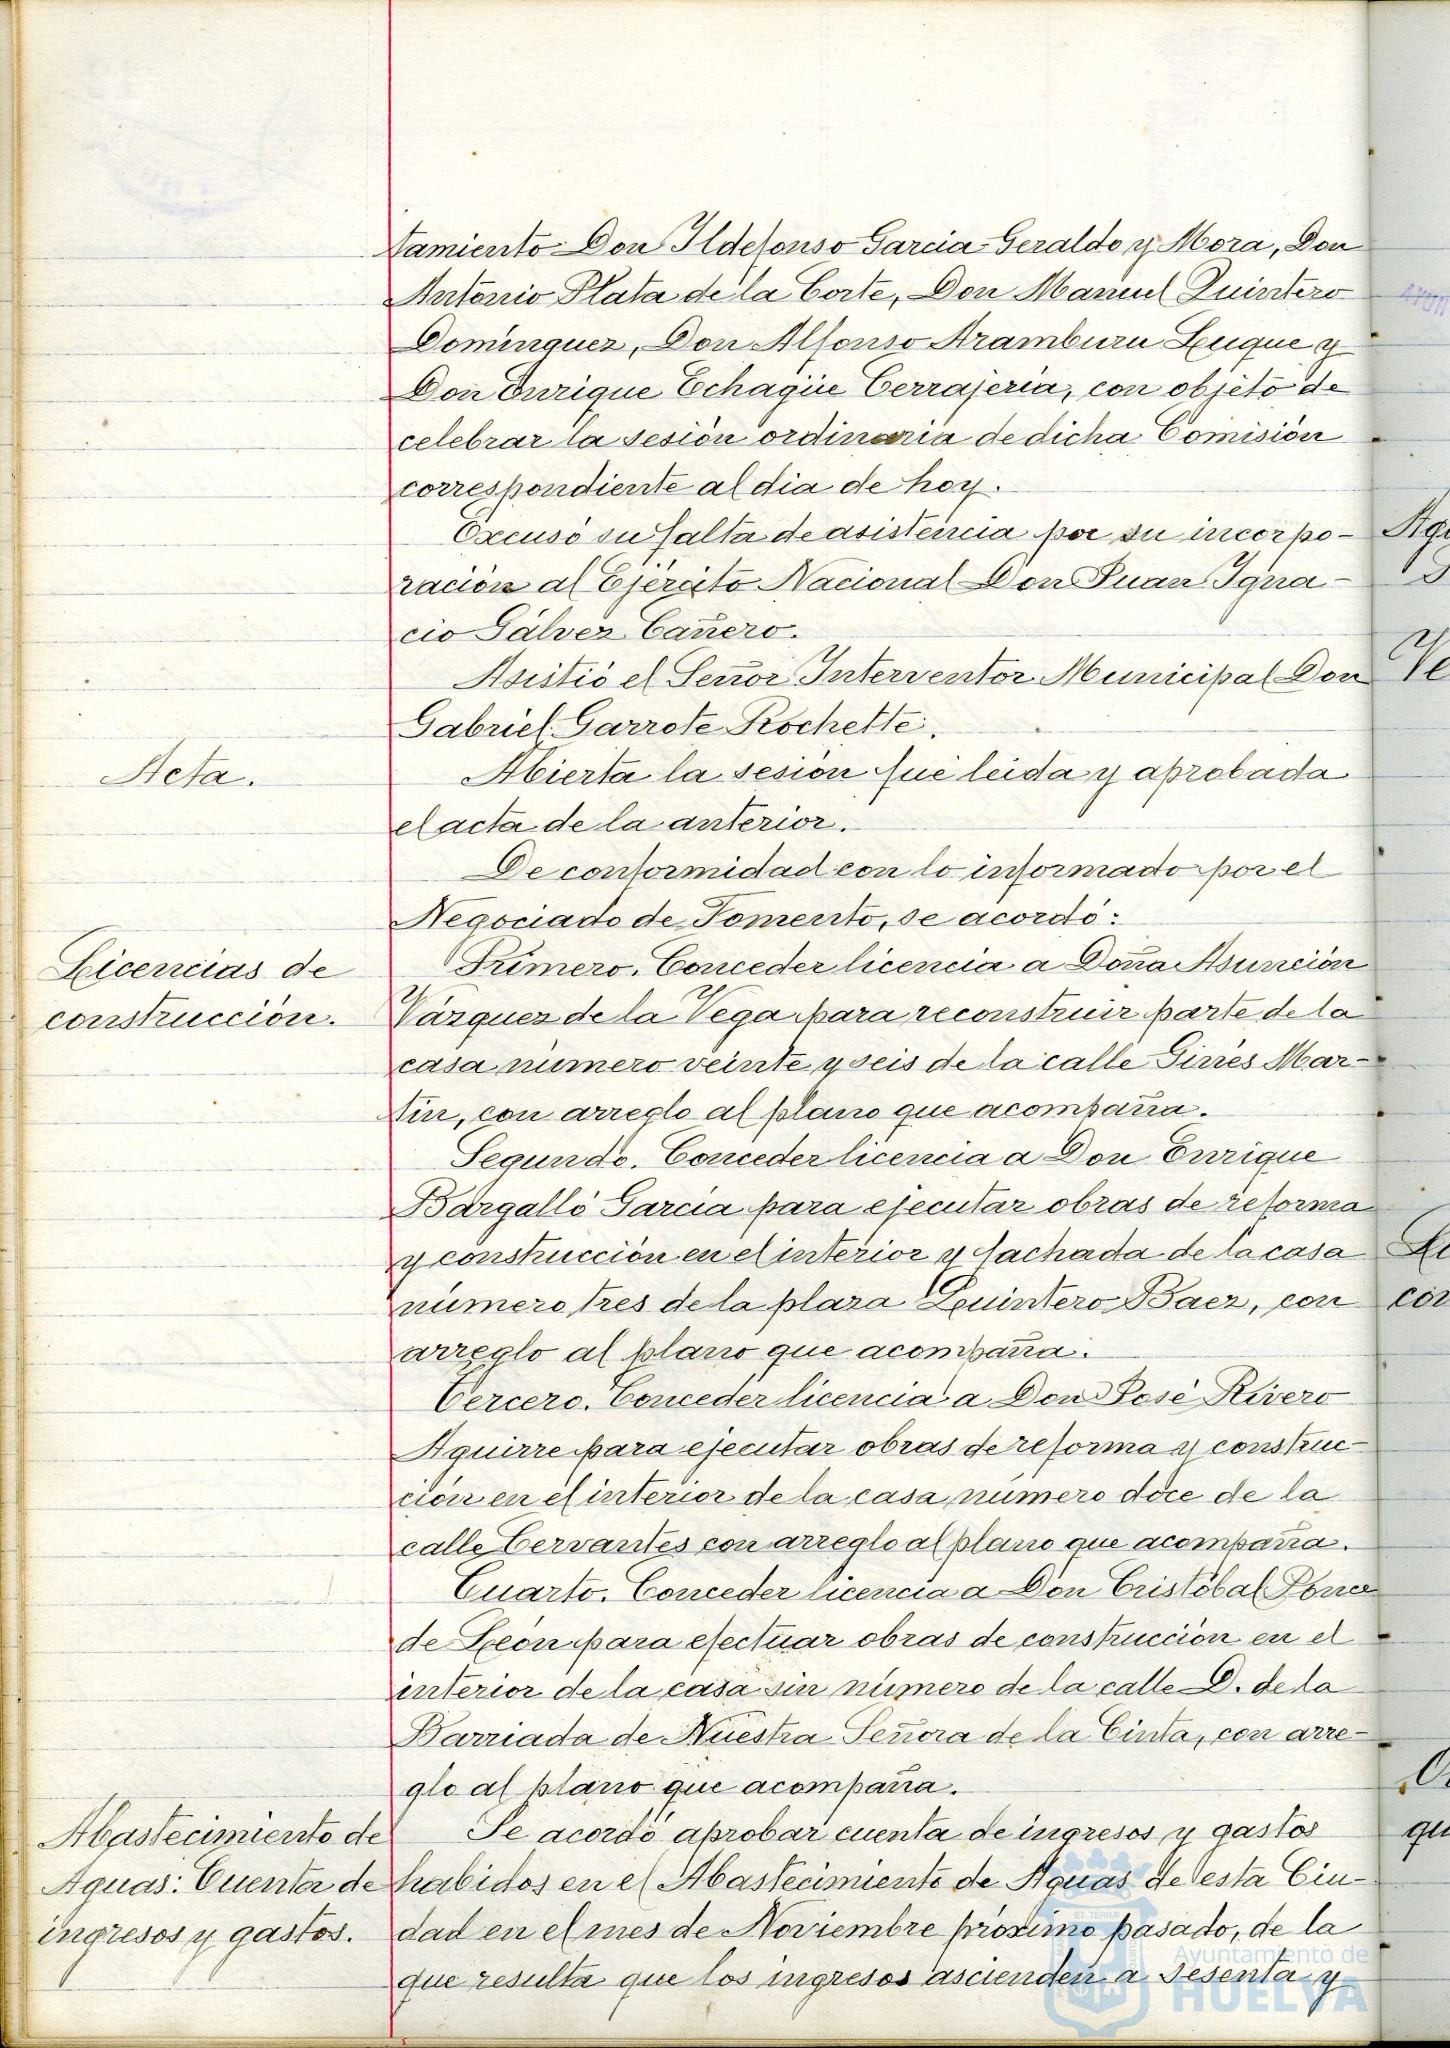 tamiento Don Ildefonso Garcia-Geraldo y Mora, Don
Antonio Plata de la Corte, Don Manuel Quintero
Dominguez, Don Alfonso Aramburu Luque y
Don Enrique Echagüe Cerrajeria, con objeto de
celebrar la sesión ordinaria de dicha Comisión
correspondiente al dia de hoy.
Excusó su falta de asistencia por su incorpo-
ración al Ejército Nacional Don Juan Igna-
cio Gálvez Cañero.
Asistió el Señor Interventor Municipal Don
Gabriel Garrote Rochette.
Acta.
Abierta la sesión fué leida y aprobada
el acta de la anterior.
De conformidad con lo informado por el
Negociado de Fomento, se acordó:
Licencias de
construcción.
Primero. Conceder licencia a Doña Asunción
Vázquez de la Vega para reconstruir parte de la
casa número veinte y seis de la calle Ginés Mar-
tin, con arreglo al plano que acompaña.
Segundo. Conceder licencia a Don Enrique
Bargalló García para ejecutar obras de reforma
y construcción en el interior y fachada de la casa
número tres de la plaza Quintero Baez, con
arreglo al plano que acompaña.
Tercero. Conceder licencia a Don José Rivero
Aguirre para ejecutar obras de reforma y construc-
ción en el interior de la casa número doce de la
calle Cervantes con arreglo al plano que acompaña.
Cuarto. Conceder licencia a Don Cristóbal Ponce
de León para efectuar obras de construcción en el
interior de la casa sin número de la calle D. de la
Barriada de Nuestra Señora de la Cinta, con arre-
glo al plano que acompaña.
Abastecimiento de
Aguas: Cuenta de
ingresos y gastos.
Se acordó aprobar cuenta de ingresos y gastos
habidos en el Abastecimiento de Aguas de esta Ciu-
dad en el mes de Noviembre próximo pasado, de la
que resulta que los ingresos ascienden a sesenta y
Ayuntamiento de
HUELVA